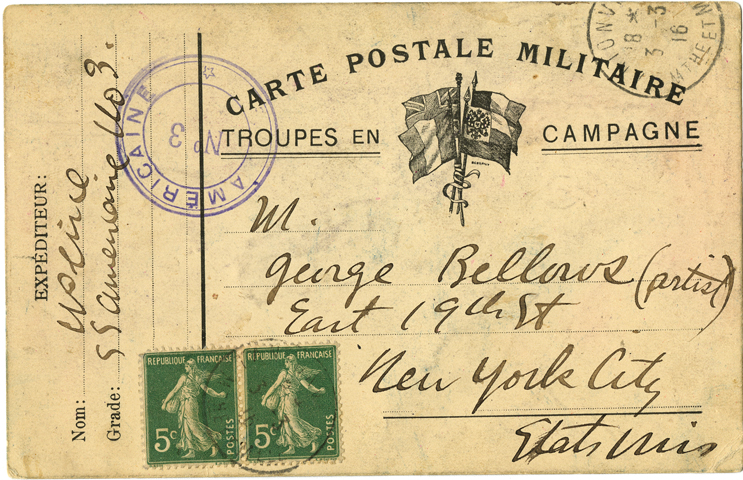 CARTE POSTALE MILITAIRE
TROUPES EN CAMPAGNE
18 * 3 -3 16
AMÉRICAINE
No 3
EXPÉDITEUR:
Nom:
Grade: SS Americaine No 3.
M.
George Bellows (artist)
East 19th St
New York City
Etats Unis
REPUBLIQUE FRANÇAISE
5c
POSTES
REPUBLIQUE FRANÇAISE
5c
POSTES